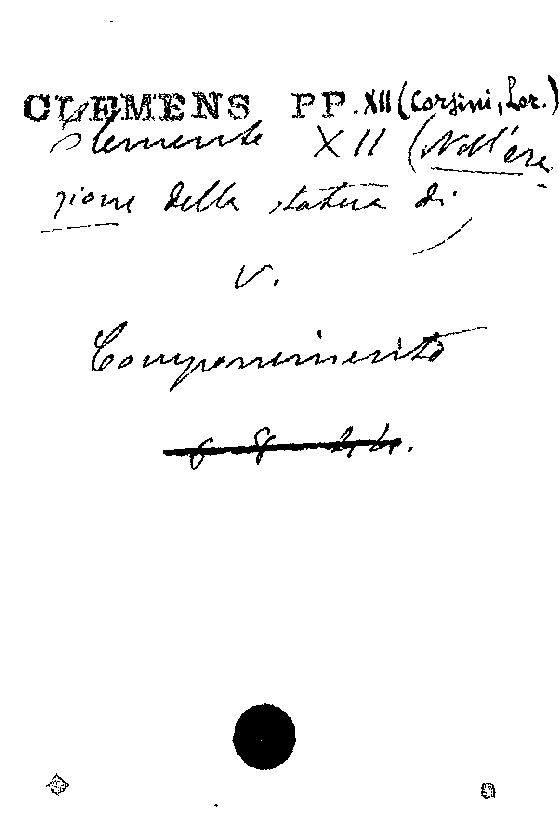 CLEMENS PP. XII (Corsini, Lor.)
Clemente XII (Nell'ere
zione della statua di)
v.
Componimento